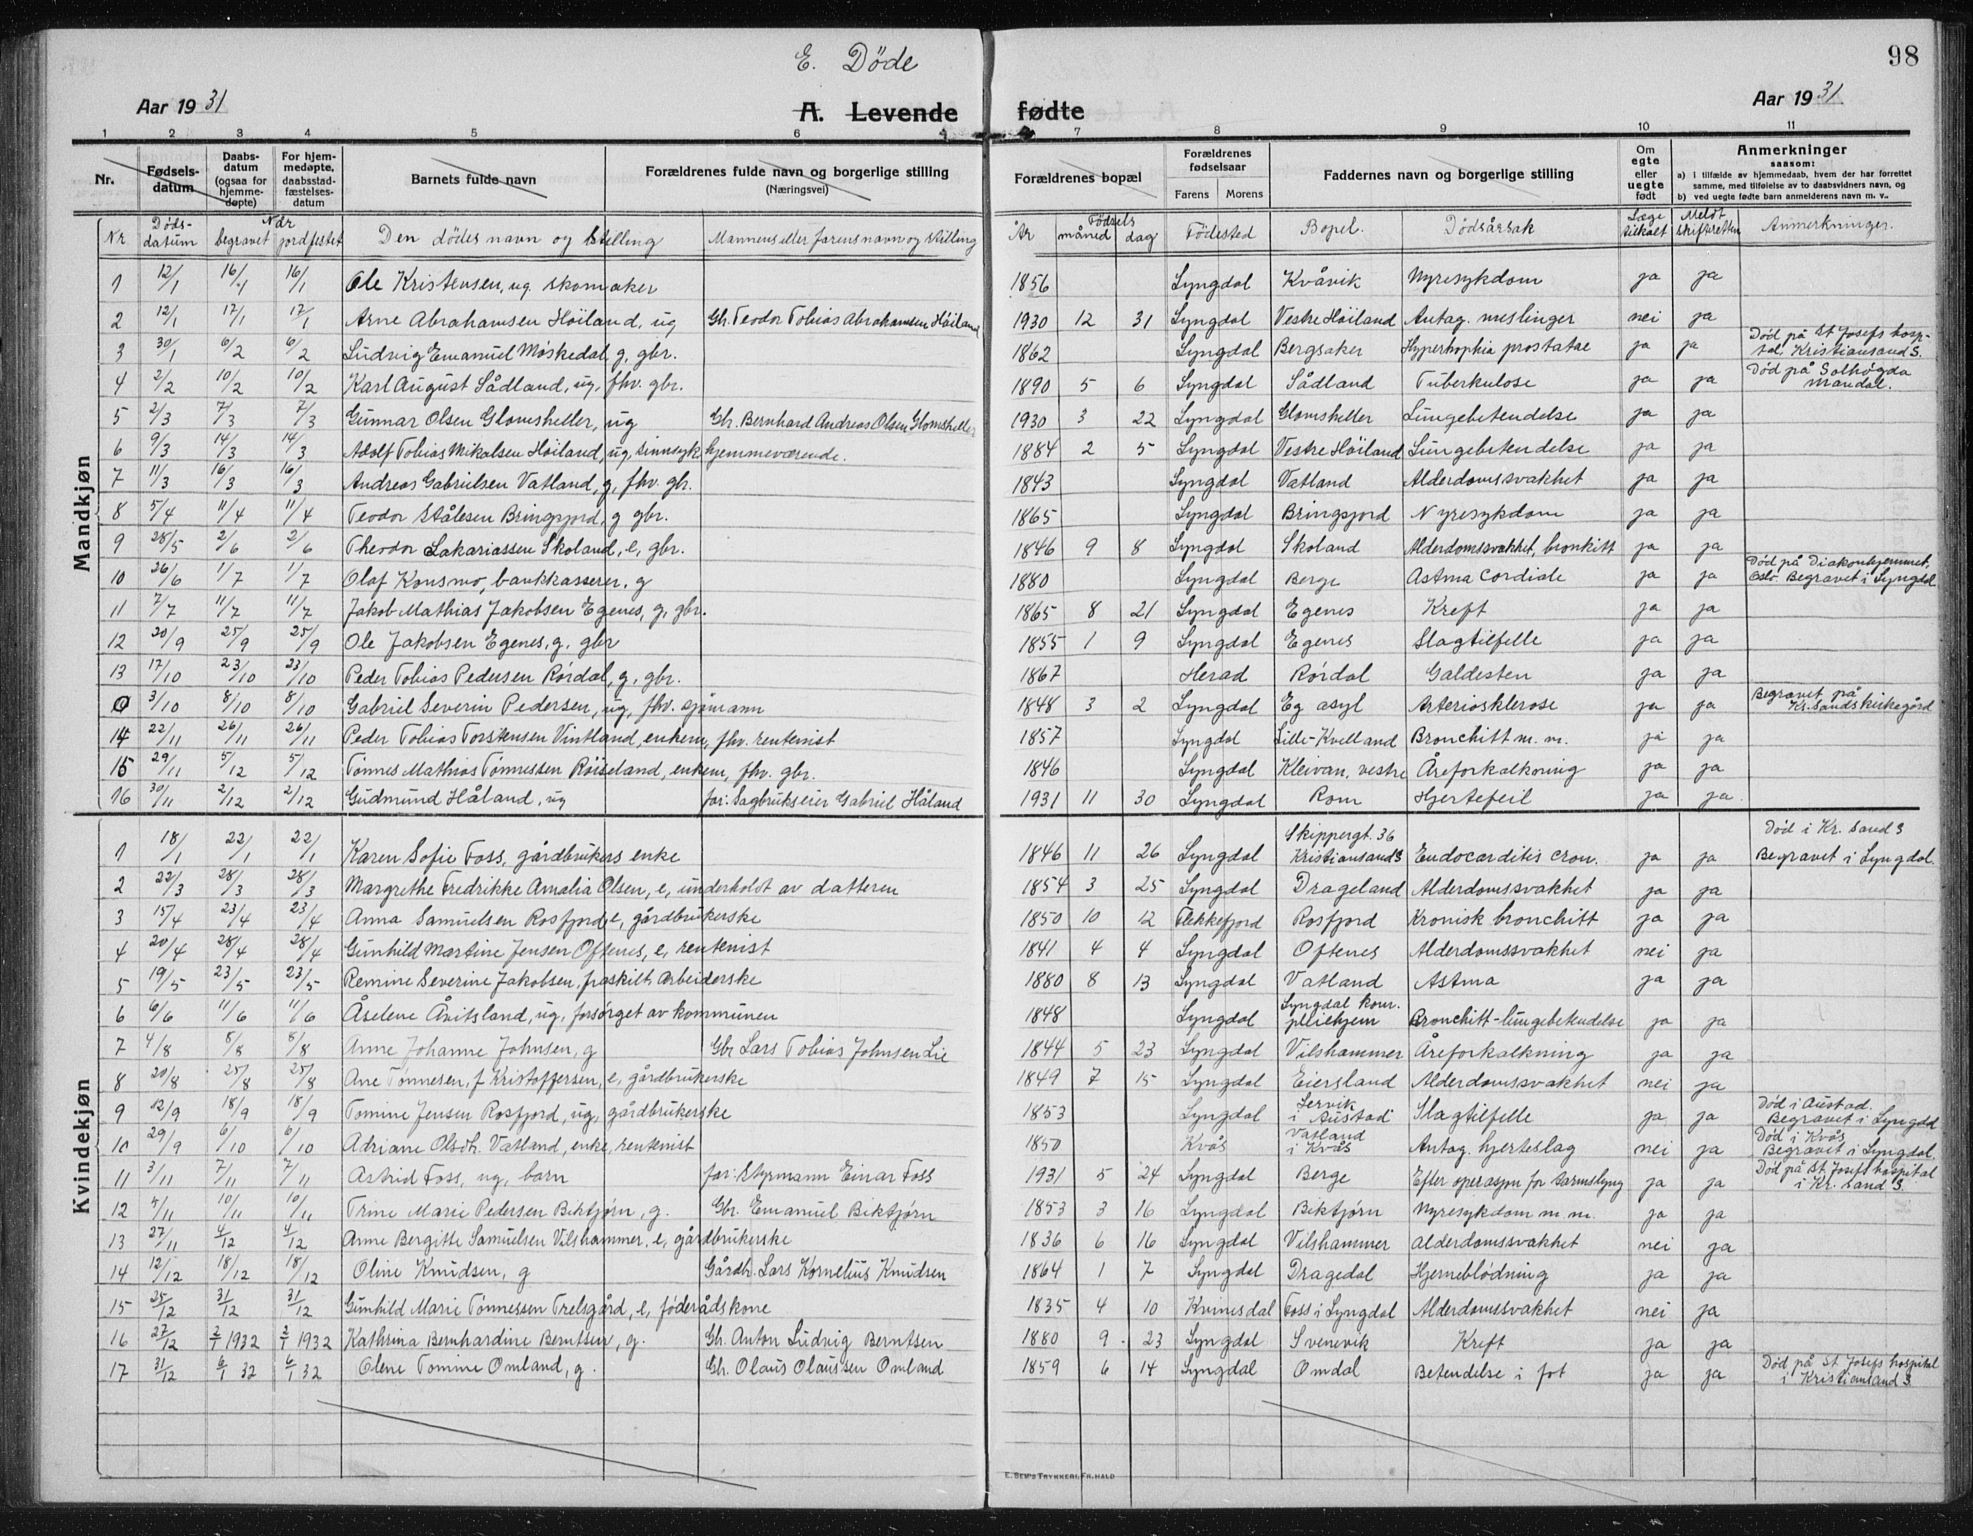 98
E. Døde
Aar 1931 A. Levende fødte Aar 1931
1 2 3 4 5 6 7 8 9 10 11
Nr. Fødsels-datum Daabs-datum (ogsaa for hjemme-døpte) For hjem-medøpte, daabsstad-fæstelses-datum Barnets fulde navn Forældrenes fulde navn og borgerlige stilling (Næringsvei) Forældrenes bopæl Forældrenes fødselsaar Farens Morens Faddernes navn og borgerlige stilling Om egte eller uegte født Anmerkninger saasom: a) i tilfælde av hjemmedaab, hvem der har forrettet samme, med tilføielse av to daabsvidners navn, og b) ved uegte fødte barn anmelderens navn m. v..
Nr Døds-datum Når begravet jordfestet Den dødes navn og stilling Mannens eller farens navn og stilling År Fødsels måned dag Fødested Bopel. Dødsårsak Læge tilkalt Meldt skifteretten Anmerkninger.
Mandkjøn
1 12/1 16/1 16/1 Ole Kristensen, ug. skomaker 1856 Lyngdal Kvåvik Nyresykdom ja ja
2 12/1 17/1 17/1 Arne Abrahamsen Høiland, ug Gbr. Teodor Tobias Abrahamsen Høiland 1930 12 31 Lyngdal Vestre Høiland Antag. meslinger nei ja
3 30/1 6/2 6/2 Ludvig Emanuel Møskedal, g, gbr. 1862 Lyngdal Bergsaker Hyperthophia prostatae ja ja Død på St Josefs hosp-tal, Kristiansand S.
4 2/2 10/2 10/2 Karl August Sådland, ug, fhv. gbr. 1890 5 6 Lyngdal Sådland Tuberkulose ja ja Død på Solhøgda Mandal.
5 2/3 7/3 7/3 Gunnar Olsen Glomsheller, ug Gbr. Bernhard Andreas Olsen Glomsheller 1930 3 22 Lyngdal Glomsheller Lungebetendelse ja ja
6 9/3 14/3 14/3 Adolf Tobias Mikalsen Høiland, ug, sinnsyk hjemmeværende. 1884 2 5 Lyngdal Vestre Høiland Lungebetendelse ja ja
7 11/3 16/3 16/3 Andreas Gabrielsen Vatland, g, fhv. gbr. 1843 Lyngdal Vatland Alderdomssvakhet ja ja
8 5/4 11/4 11/4 Teodor Stålesen Bringsjord, g gbr. 1865 Lyngdal Bringsjord Nyresykdom ja ja
9 28/5 2/6 2/6 Theodor Sakariassen Skoland, e, gbr. 1846 9 8 Lyngdal Skoland Alderdomssvakhet, bronkitt ja ja
10 26/6 1/7 1/7 Olaf Konsmo, bankkasserer, g 1880 Lyngdal Berge Astma cordiale ja ja Død på Diakonhjemmet, Oslo. Begravet i Lyngdal
11 7/7 11/7 11/7 Jakob Mathias Jakobsen Egenes, g, gbr. 1865 8 21 Lyngdal Egenes Kreft ja ja
12 20/9 25/9 25/9 Ole Jakobsen Egenes, g, gbr 1855 1 9 Lyngdal Egenes Slagtilfelle ja ja
13 17/10 23/10 23/10 Peder Tobias Pedersen Rørdal, g, gbr. 1867 Herad Rørdal Galdesten ja ja
0 3/10 8/10 8/10 Gabriel Severin Pedersen, ug, fhv. sjømann 1848 3 2 Lyngdal Eg asyl Arteriosklerose ja ja Begravet på Kr. Sands kirkegård
14 22/11 26/11 26/11 Peder Tobias Torstensen Vintland, enkem, fhv. rentenist 1857 Lyngdal Lille-Kvelland Bronchitt m. m. ja ja
15 29/11 5/12 5/12 Tønnes Mathias Tønnessen Røiseland, enkem, fhv. gbr. 1846 Lyngdal Kleivan, vestre Åreforkalkning ja ja
16 30/11 2/12 2/12 Gudmund Håland, ug far: Sagbrukseier Gabriel Håland 1931 11 30 Lyngdal Rom Hjertefeil ja ja.
Kvindekjøn
1 18/1 22/1 22/1 Karen Sofie Foss, gårdbrukers enke 1846 11 26 Lyngdal Skippergt. 36 Kristiansand S Endocarditis cron. ja ja Død i Kr. Sand S Begravet i Lyngdal.
2 22/3 28/3 28/3 Margrethe Fredrikke Amalia Olsen, e, underholdt av datteren 1854 3 25 Lyngdal Drageland Alderdomssvakhet ja ja
3 15/4 23/4 23/4 Anna Samuelsen Rosfjord, e, gårdbrukerske 1850 10 12 Flekkefjord Rosfjord Kronisk bronchitt ja ja
4 20/4 28/4 28/4 Gunhild Martine Jensen Oftenes, e, rentenist 1841 4 4 Lyngdal Oftenes Alderdomssvakhet nei ja
5 19/5 23/5 23/5 Remine Severine Jakobsen, fraskilt Arbeiderske 1880 8 13 Lyngdal Vatland Astma ja ja
6 6/6 11/6 11/6 Åselene Åvitsland, ug, forsørget av kommunen 1848 Lyngdal Lyngdal kom. pleiehjem Bronchitt-lungebetendelse ja ja
7 4/8 8/8 8/8 Anne Johanne Johnsen, g Gbr Lars Tobias Johnsen Lie 1844 5 23 Lyngdal Vilshammer Åreforkalkning ja ja
8 20/8 25/8 25/8 Ane Tønnesen, f. Kristoffersen, e, gårdbrukerske 1849 7 15 Lyngdal Eiersland Alderdomssvakhet nei ja
9 12/9 18/9 18/9 Tomine Jensen Rosfjord, ug, gårdbrukerske 1853 Lyngdal Lervik i Austad Slagtilfelle ja ja Død i Austad. Begravet i Lyngdal
10 29/9 6/10 6/10 Adriane Olsdtr. Vatland, enke, rentenist 1850 Kvås Vatland i Kvås Antag. hjerteslag nei ja Død i Kvås Begravet i Lyngdal.
11 3/11 7/11 7/11 Astrid Foss, ug, barn far: Styrmann Einar Foss 1931 5 24 Lyngdal Berge Efter operasjon for tarmslyng ja ja Død på St. Josefs hospital i Kr. sand S.
12 4/11 10/11 10/11 Trine Marie Pedersen Biktjørn, g. Gbr. Emanuel Biktjørn 1853 3 16 Lyngdal Biktjørn Nyresykdom m. m. ja ja
13 27/11 4/12 4/12 Anne Bergitte Samuelsen Vilshammer, e, gårdbrukerske 1836 6 16 Lyngdal Vilshammer Alderdomssvakhet nei ja
14 12/12 18/12 18/12 Oline Knudsen, g Gårdb. Lars Kornelius Knudsen 1864 1 7 Lyngdal Dragedal Hjerneblødning ja ja
15 25/12 31/12 31/12 Gunhild Marie Tønnessen Trelsgård, e, føderådskone 1835 4 10 Kvinesdal Foss i Lyngdal Alderdomssvakhet nei ja
16 27/12 2/1 1932 2/1 1932 Kathrina Bernhardine Berntsen, g. Gb. Anton Ludvig Berntsen 1880 9 23 Lyngdal Svenevik Kreft ja ja
17 31/12 6/1 32 6/1 32 Olene Tomine Omland, g. Gb. Olaus Olaussen Omland 1859 6 14 Lyngdal Omdal Betendelse i fot ja ja Død på St Josefs hospital i Kristiansand S.
E. SEM'S TRYKKERI, FR. HALD